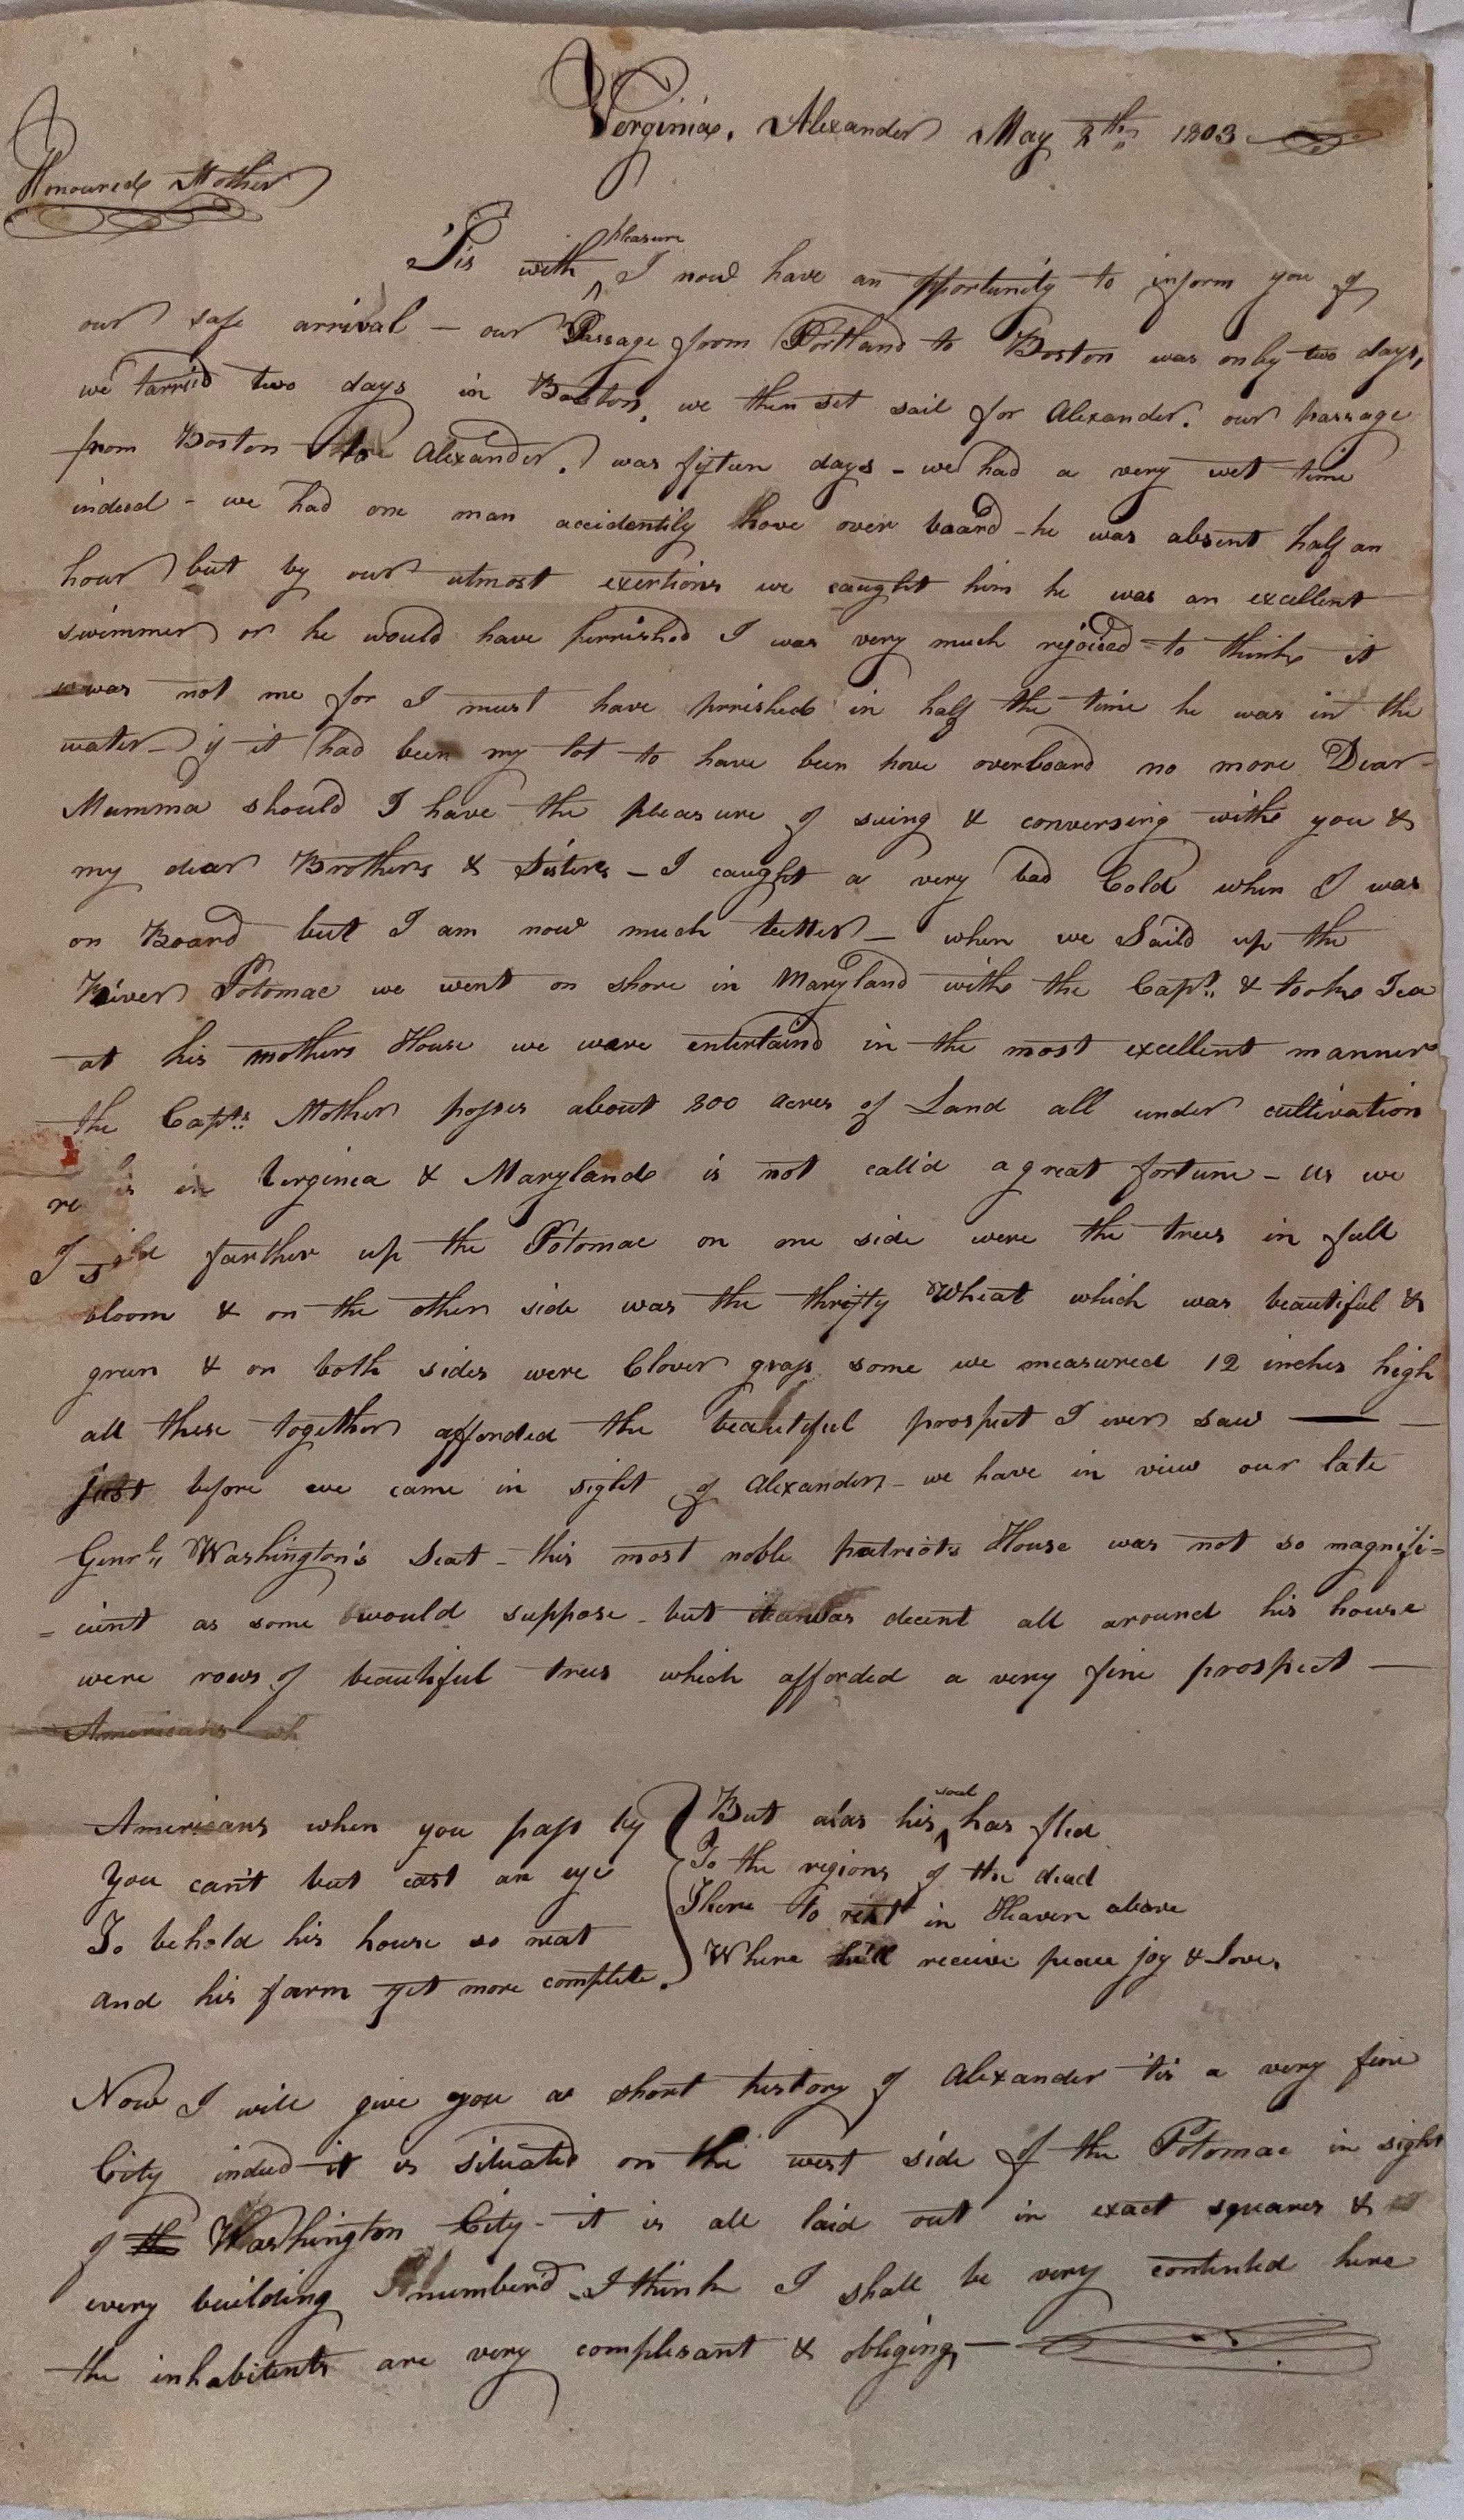 Verginia, Alexander May 8th 1803
Honoured Mother
Tis with ^pleasure I now have an opportunity to inform you of
our safe arrival – our Passage from Portland to Boston was only two days,
we tarried two days in Boston, we then set sail for Alexander. our passage
from Boston to Alexander. was fifteen days – we had a very wet time
indeed – we had one man accidentily hove over board – he was absent half an
hour but by our utmost exertions we caught him he was an excellent
swimmer or he would have perrished I was very much rejoiced to think it
was not me for I must have prrished in half the time he was in the
water – if it had been my lot to have been hove overboard no more Dear
Mamma should I have the pleasure of seing & conversing with you &
my dear Brothers & Sisters – I caught a very bad Cold when I was
on Board but I am now much better – when we Saild up the
River Potomac we went on shore in Maryland with the Capt. & took Tea
at his mothers House we were entertaind in the most excellent manner
the Capts. Mother posses about 800 acres of Land all under cultivation
is in Verginia & Maryland is not call'd a great fortune – as we
farther up the Potomac on one side were the trees in full
bloom & on the other side was the thrifty Wheat which was beautiful &
green & on both sides were Clover grass some we measured 12 inches high
all these together afforded the beautiful prospect I ever saw —
just before we came in sight of Alexander – we have in view our late
Genrl. Washington's Seat – this most noble patriots House was not so magnifi=
=cient as some would suppose – but it was decent all around his house
were rows of beautiful trees which afforded a very fine prospect —
Americans wh
Americans when you pass by
You can't but cast an eye
To behold his house so neat
and his farm yet more complete.
But alas his ^soul has fled
To the regions of the dead
There to rest in Heaven above
Where he'll receive peace joy & Love,
Now I will give you a short history of Alexander 'tis a very fine
City indeed it is situated on the west side of the Potomac in sight
of the Washington City – it is all laid out in exact squares &
every building numberd – I think I shall be very contented here
the inhabitents are very complesant & obliging, —